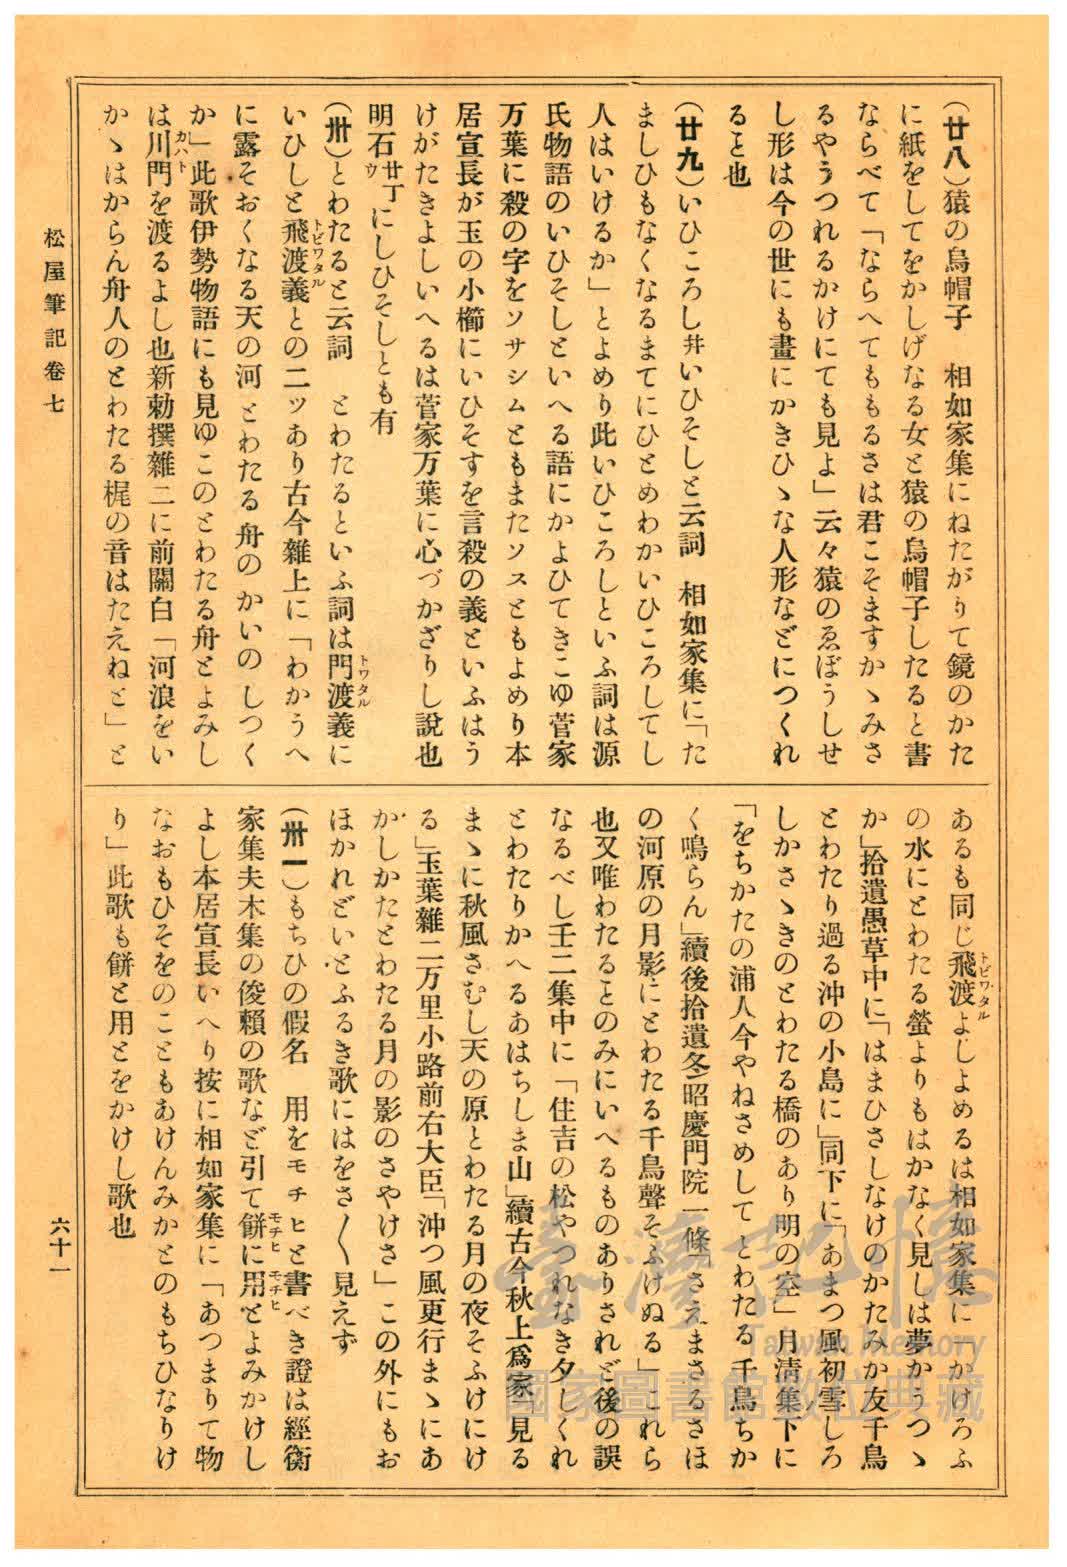 (廿八)猿の烏帽子　相如家集にねたがりて鏡のかた
に紙をしてをかしげなる女と猿の烏帽子したると書
ならべて「ならへてももるさは君こそますかゝみさ
るやうつれるかけにても見よ」云々猿のゑぼうしせ
し形は今の世にも畫にかきひゝな人形などにつくれ
ること也
(廿九)いひころし幷いひそしと云詞　相如家集に「た
ましひもなくなるまてにひとめわかいひころしてし
人はいけるか」とよめり此いひころしといふ詞は源
氏物語のいひそしといへる語にかよひてきこゆ菅家
万葉に殺の字をソサシムともまたソスともよめり本
居宣長が玉の小櫛にいひそすを言殺の義といふはう
けがたきよしいへるは菅家万葉に心づかざりし說也
明石廿丁ウにしひそしとも有
(卅)とわたると云詞　とわたるといふ詞は門渡義に
トワタル
いひしと飛渡義との二ツあり古今雜上に「わかうへ
トビワタル
に露そおくなる天の河とわたる舟のかいのしつく
か」此歌伊勢物語にも見ゆこのとわたる舟とよみし
は川門を渡るよし也新勅撰雜二に前關白「河浪をい
カハト
かゝはからん舟人のとわたる梶の音はたえねど」と
あるも同じ飛渡よしよめるは相如家集に「かけろふ
トビワタル
の水にとわたる螢よりもはかなく見しは夢かうつゝ
か」拾遺愚草中に「はまひさしなけのかたみか友千鳥
とわたり過る沖の小島に」同下に「あまつ風初雪しろ
しかさゝきのとわたる橋のあり明の空」月淸集下に
「をちかたの浦人今やねさめしてとわたる千鳥ちか
く鳴らん」續後拾遺冬昭慶門院一條「さえまさるさほ
の河原の月影にとわたる千鳥聲そふけぬる」これら
也又唯わたることのみにいへるものありされど後の誤
なるべし壬二集中に「住吉の松やつれなき夕しくれ
とわたりかへるあはちしま山」續古今秋上爲家「見る
まゝに秋風さむし天の原とわたる月の夜そふけにけ
る」玉葉雜二万里小路前右大臣「沖つ風更行まゝにあ
かしかたとわたる月の影のさやけさ」この外にもお
ほかれどいとふるき歌にはをさ〱見えず
(卅一)もちひの假名　用をモチヒと書べき證は經衡
家集夫木集の俊賴の歌など引て餅に用とよみかけし
モチヒ　モチヒ
よし本居宣長いへり按に相如家集に「あつまりて物
なおもひそをのこともあけんみかとのもちひなりけ
り」此歌も餅と用とをかけし歌也
松屋筆記卷七
六十一
臺灣記憶
Taiwan Memory
國家圖書館數位典藏